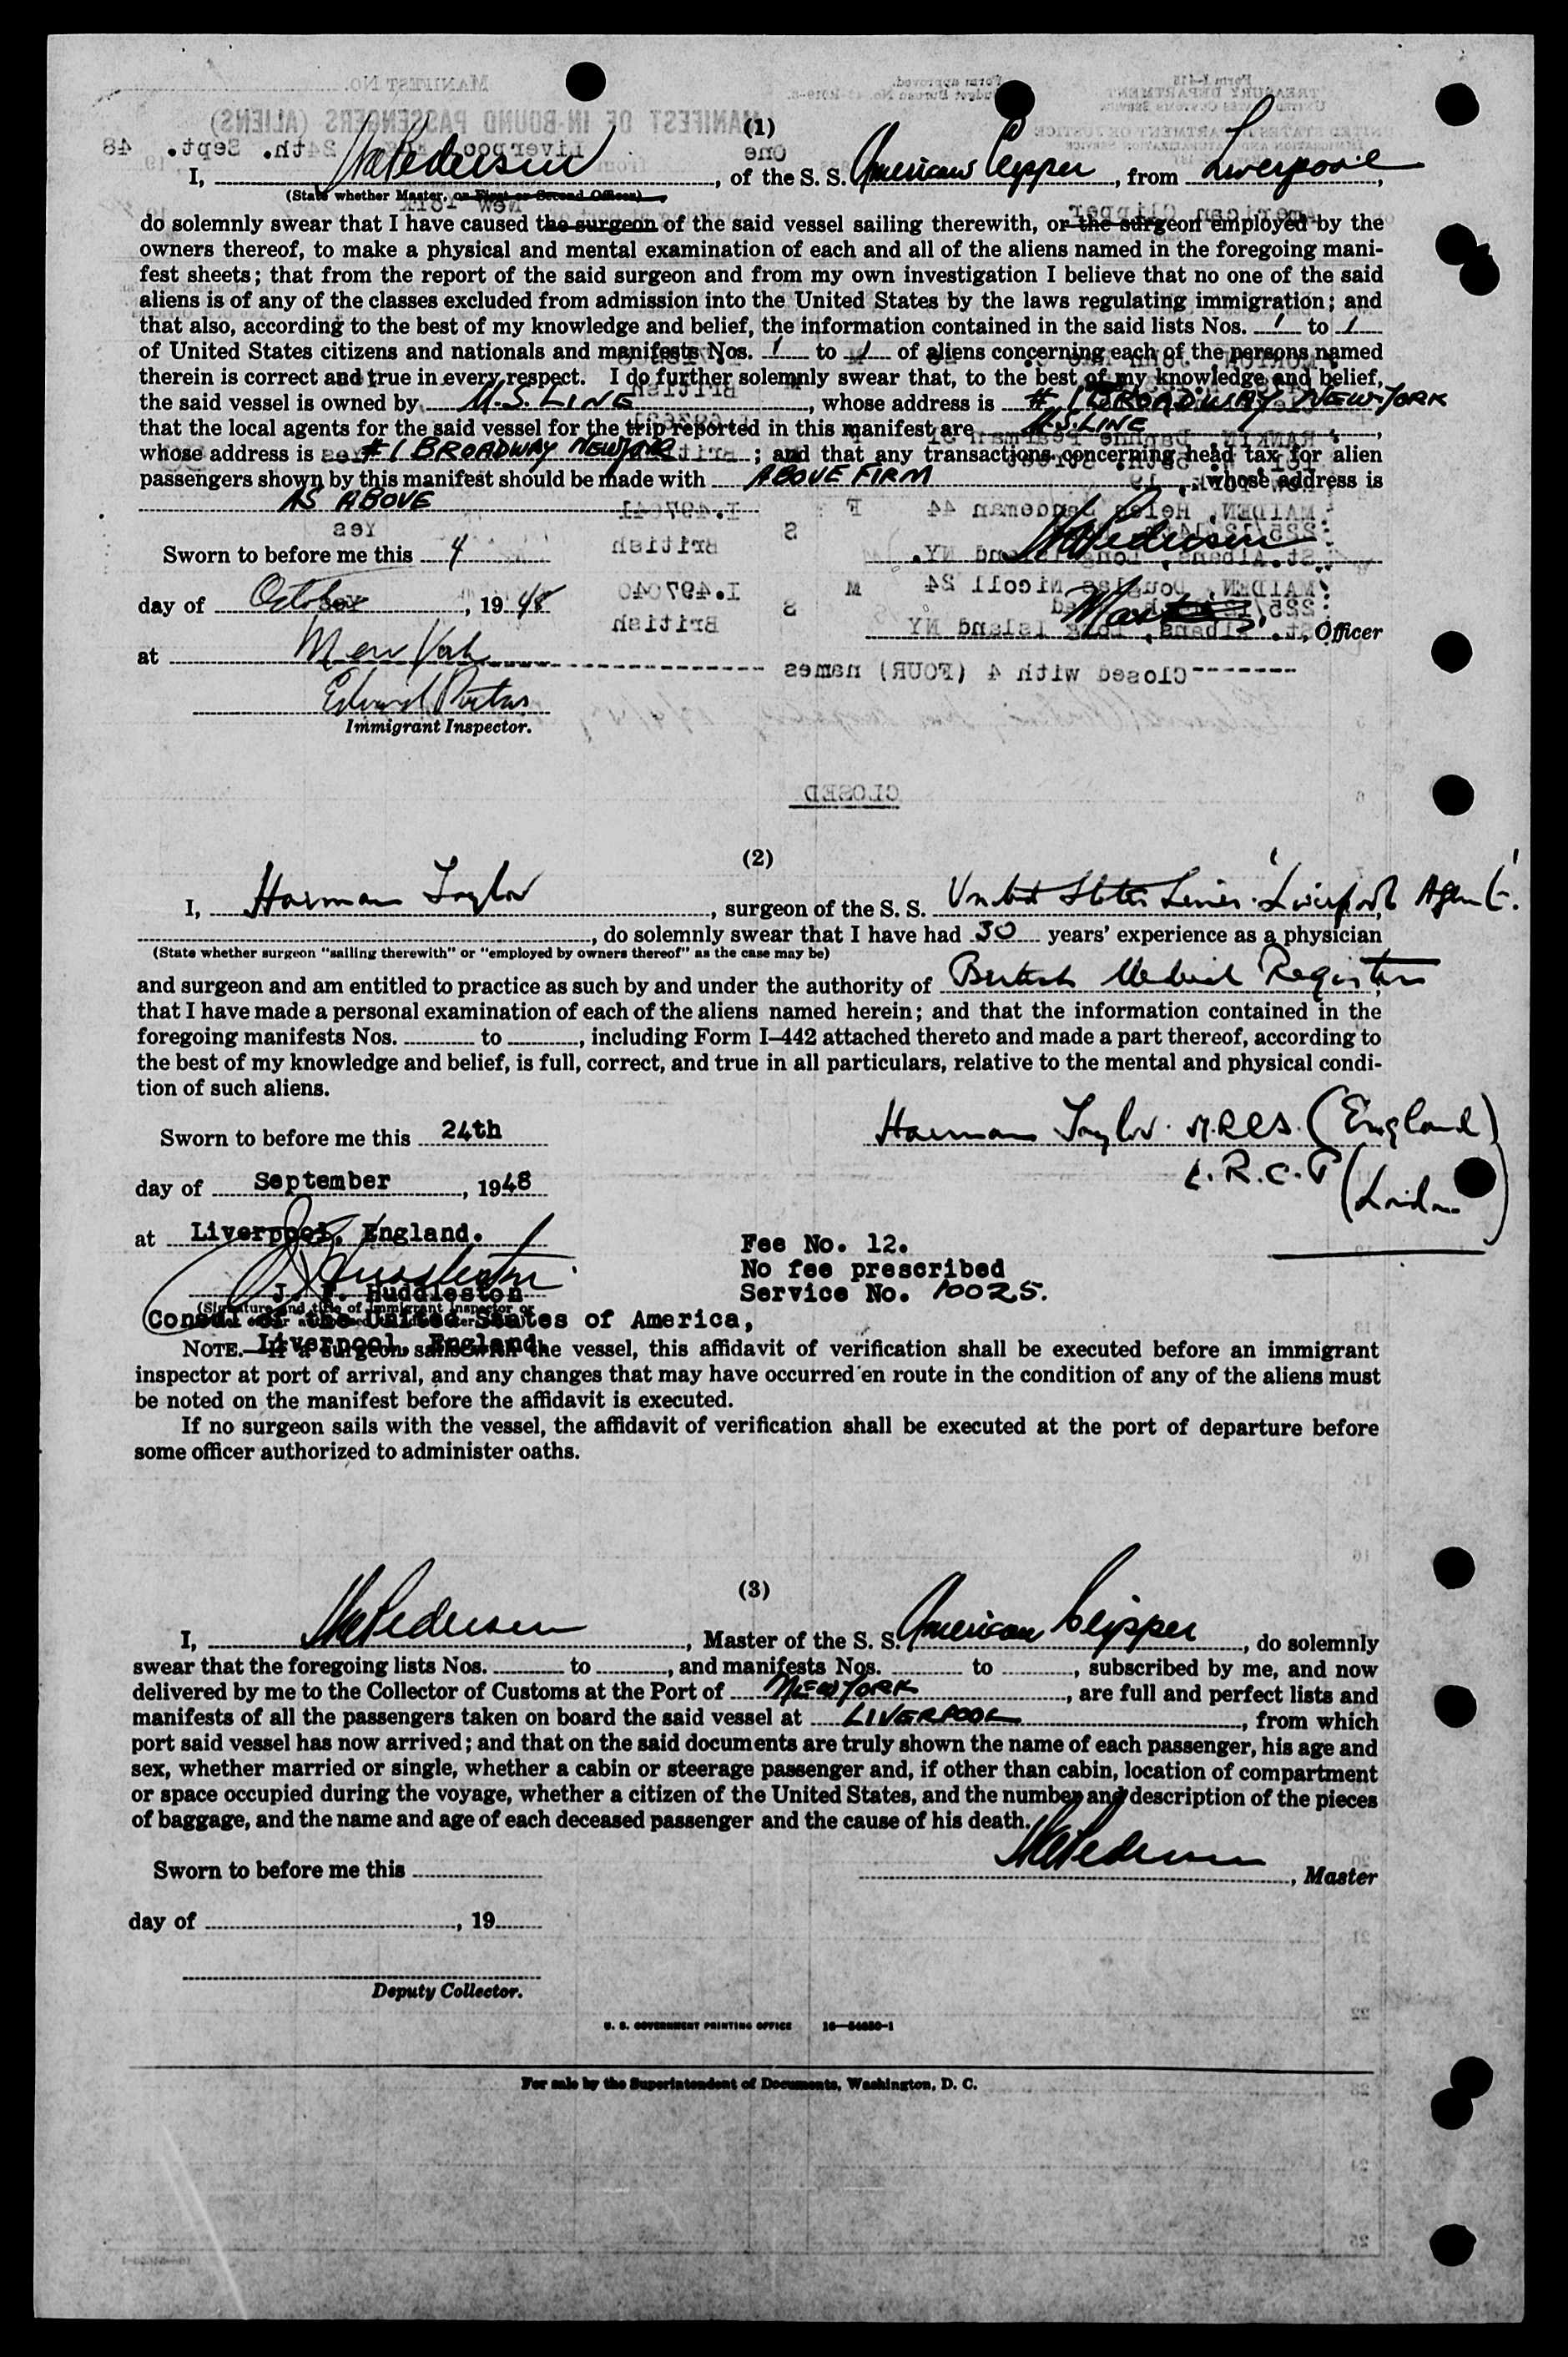 (1)
I, Pedersen, of the S. S. American Clipper, from Liverpool,
(State whether Master, or First or Second Officer)
do solemnly swear that I have caused the surgeon of the said vessel sailing therewith, or the surgeon employed by the
owners thereof, to make a physical and mental examination of each and all of the aliens named in the foregoing mani-
fest sheets; that from the report of the said surgeon and from my own investigation I believe that no one of the said
aliens is of any of the classes excluded from admission into the United States by the laws regulating immigration; and
that also, according to the best of my knowledge and belief, the information contained in the said lists Nos. 1 to 1
of United States citizens and nationals and manifests Nos. 1 to 1 of aliens concerning each of the persons named
therein is correct and true in every respect. I do further solemnly swear that, to the best of my knowledge and belief,
the said vessel is owned by U.S. LINE, whose address is # 1 BROADWAY NEW YORK
that the local agents for the said vessel for the trip reported in this manifest are U.S. LINE,
whose address is # 1 BROADWAY NEW YORK; and that any transactions concerning head tax for alien
passengers shown by this manifest should be made with ABOVE FIRM, whose address is
AS ABOVE
Pedersen
Sworn to before me this 4
day of October, 1948
Master, Officer
at New York
Edward
Immigrant Inspector.
(2)
I, Harman Taylor, surgeon of the S. S. United States Lines 'Liverpool Agent'.
, do solemnly swear that I have had 30 years' experience as a physician
(State whether surgeon "sailing therewith" or "employed by owners thereof" as the case may be)
and surgeon and am entitled to practice as such by and under the authority of British Medical Register,
that I have made a personal examination of each of the aliens named herein; and that the information contained in the
foregoing manifests Nos. to , including Form I-442 attached thereto and made a part thereof, according to
the best of my knowledge and belief, is full, correct, and true in all particulars, relative to the mental and physical condi-
tion of such aliens.
Harman Taylor. M.R.C.S. (England)
Sworn to before me this 24th
L.R.C.P (London)
day of September, 1948
at Liverpool, England.
Fee No. 12.
No fee prescribed
Service No. 10025.
J. F. Huddleston
(Signature and title of immigrant inspector or
Consul of the United States of America,
Liverpool, England.
NOTE.—If a surgeon sails with the vessel, this affidavit of verification shall be executed before an immigrant
inspector at port of arrival, and any changes that may have occurred en route in the condition of any of the aliens must
be noted on the manifest before the affidavit is executed.
If no surgeon sails with the vessel, the affidavit of verification shall be executed at the port of departure before
some officer authorized to administer oaths.
(3)
I, Pedersen, Master of the S. S. American Clipper, do solemnly
swear that the foregoing lists Nos. to , and manifests Nos. to , subscribed by me, and now
delivered by me to the Collector of Customs at the Port of NEW YORK, are full and perfect lists and
manifests of all the passengers taken on board the said vessel at LIVERPOOL, from which
port said vessel has now arrived; and that on the said documents are truly shown the name of each passenger, his age and
sex, whether married or single, whether a cabin or steerage passenger and, if other than cabin, location of compartment
or space occupied during the voyage, whether a citizen of the United States, and the number and description of the pieces
of baggage, and the name and age of each deceased passenger and the cause of his death.
Pedersen, Master
Sworn to before me this
day of , 19
Deputy Collector.
U. S. GOVERNMENT PRINTING OFFICE 16—54680-1
For sale by the Superintendent of Documents, Washington, D. C.